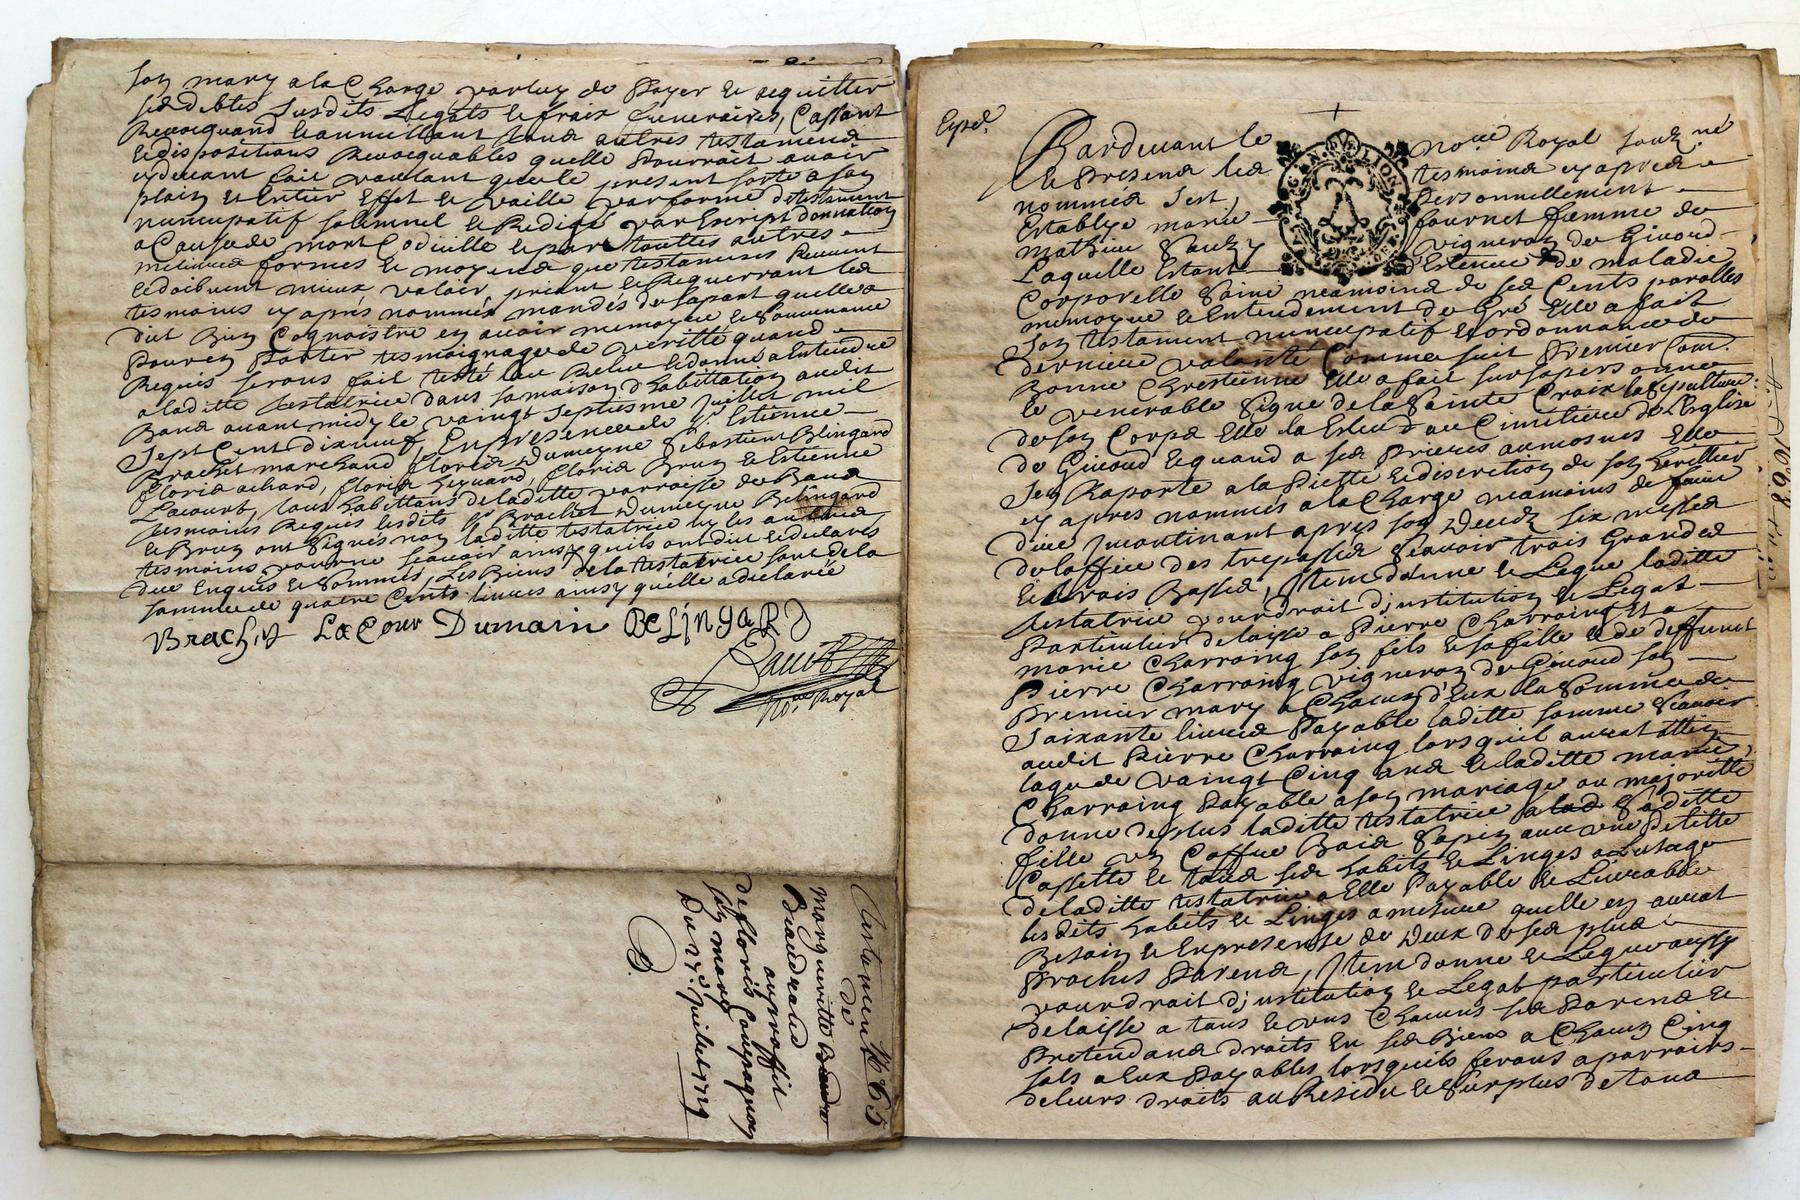 son mary a la Charge par luy de Payer et acquitter
ses debtes susdits Legats et fraix funeraires, Cassant
Revocquand et annullant tous autres testamens
et dispositions Revocquables quelle Pourrait avoir
cydevant fait voullant que le present sorte a son
plain et Entier Effet et vaille par forme de testament
nuncupatif solemnel et Redigé par Escript donnation
a Cause de mort Codicille et par touttes autres
meilleures formes et moyens que testamens Peuvent
et doibvent mieux valoir, priant et Requerrant les
tesmoins cy après nommés mandés de sa part quelle a
dict Bien Cognoistre en avoir memoyre et souvenance
Pour en Porter tesmoignage de veritté quand
Requis serons fait testé leu Releu et donné a Entendre
a laditte testatrice dans sa maison d'habittation audit
Bans avant midy le vaingt septiesme Juillet mil
sept Cent dixneuf, En presence de sr. Estienne
Brachet marchand, floris Dumeyne Sebastient Blingard
floris achard, floris heyuard, floris Brun et Estienne
Lacourt, tous habittans de laditte parroisse de Bans
tesmoins Requis lesdits sr Brachet Dumeyne Belingard
et Brun ont signés non laditte testatrice ny les autres
tesmoins pour ne sçavoir ainsy quils ont dict et declarés
due Enquis et sommés, Les Biens de la testatrice sont de la
somme de quatre Cents livres ainsy quelle a declarée
Brachet LaCour Dumain BELINGARD
No.re Royal
Testament N 65
de
Margueritte
au proffit
de floris Coupagnon
son mary
Du 27e. Juillet 1719
Expd.
Pardevant le no.re Royal souz.né
et Presens les tesmoins cy aprés
nommés s'est Personnellement
Establye marie fournet femme de
Mathieu vigneron de Givord
Laquelle Estant d'Estenue de maladie
Corporelle saine neamoins de ses Cents parolles
memoyre et Entendement de Gré Elle a fait
son testament nuncupatif et ordonnance de
derniere volonté Comme suit Premier Com.
Bonne Chrestienne Elle a fait sur sa personne
le venerable signe de la Sainte Croix la sepulture
de son Corps Elle la Esleu au Cimitiere de L'Eglise
de Givord et quand a ses Prieres aumosnes Elle
sen Raporte a la Piette et discretion de son heritier
cy apres nommés a la Charge neamoins de faire
dire Jncontinant apres son Decedz six messes
de l'office des trepassés sçavoir trois Grandes
et trois Basses, Jtem donne et Legue laditte
testatrice pour droit d'institution et Legat
Particulier delaisse a Pierre Charraing et a
marie Charraing son fils et sa fille et de deffunct
Pierre Charraing vigneron de Givord son
Premier mary a Chacun d'Eux la somme de
soixante livres Payable laditte somme scavoir
audit Pierre Charraing lorsquil aurat attin
lage de vaingt Cinq ans et laditte marie
Charraing Payable a son mariage ou majoritté
donne de plus laditte testatrice a sa ditte
fille un Coffre Bois sapin avec une Petitte
Cassette et tous ses habits et Linges a L'usage
de laditte testatrice a Elle Payable et Livrable
lesdits habits et Linges a mesure quelle en aurat
Besoin et En presense de Deux de ses plus
Proches Parens, Jtem donne et Legue aussy
pour droit d'institution et Legat particulier
delaisse a tous et uns Chacuns ses Parens et
Pretendans droits En ses Biens a Chacun Cinq
sols a Eux Payables lorsquils ferons apparroirs
de leurs droits au Residu et surplus de tous